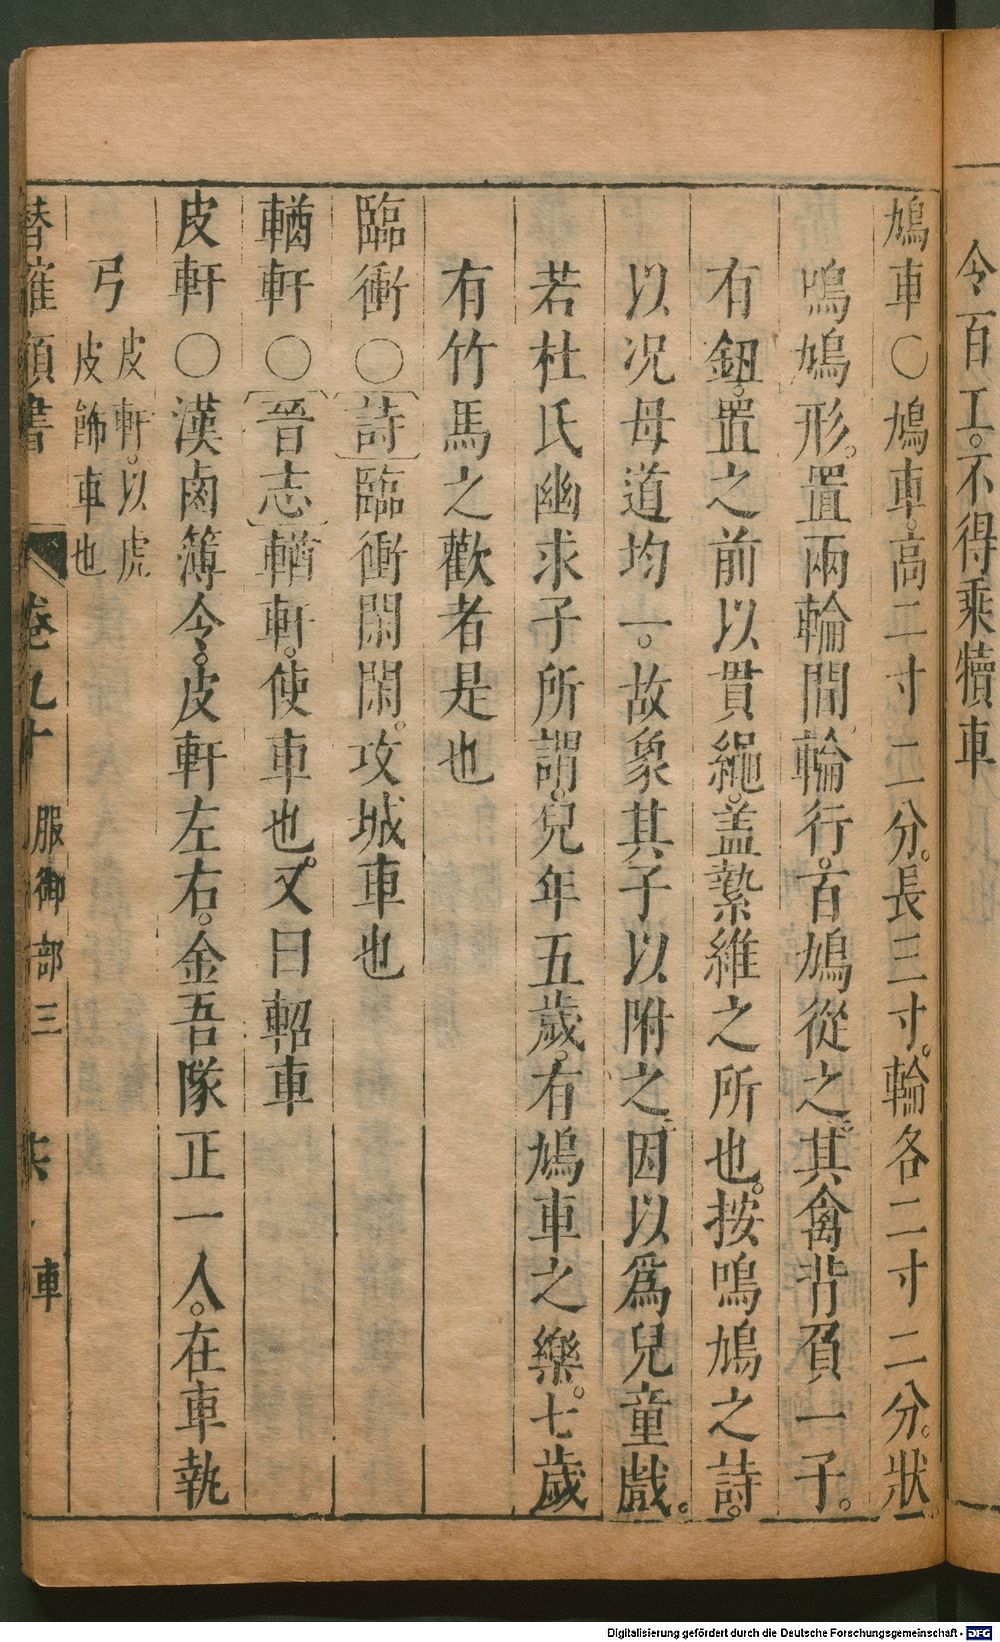 令百工。不得乘犢車。
鳩車〇鳩車。高二寸二分。長三寸。輪各二寸二分。狀
鳴鳩形。置兩輪間。輪行。百鳩從之。其禽背負一子。
有鈕。置之前以貫繩。盖縶維之所也。按鳴鳩之詩。
以况母道均一。故象其子以附之。因以爲兒童戲。
若杜氏幽求子所謂。兒年五歲。有鳩車之樂。七歲
有竹馬之歡者是也
臨衝〇〔詩〕臨衝閑閑。攻城車也
輶軒〇〔晉志〕輶軒。使車也。又曰軺車
皮軒〇漢鹵簿令。皮軒左右。金吾隊正一人。在車執
弓 皮軒。以虎
皮飾車也
潛確類書 卷九十 服御部三 車
Digitalisierung gefördert durch die Deutsche Forschungsgemeinschaft - DFG